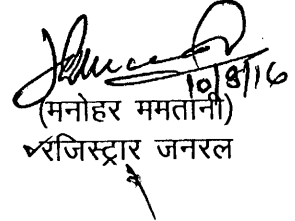 10/8/16
(मनोहर ममतानी)
रजिस्ट्रार जनरल